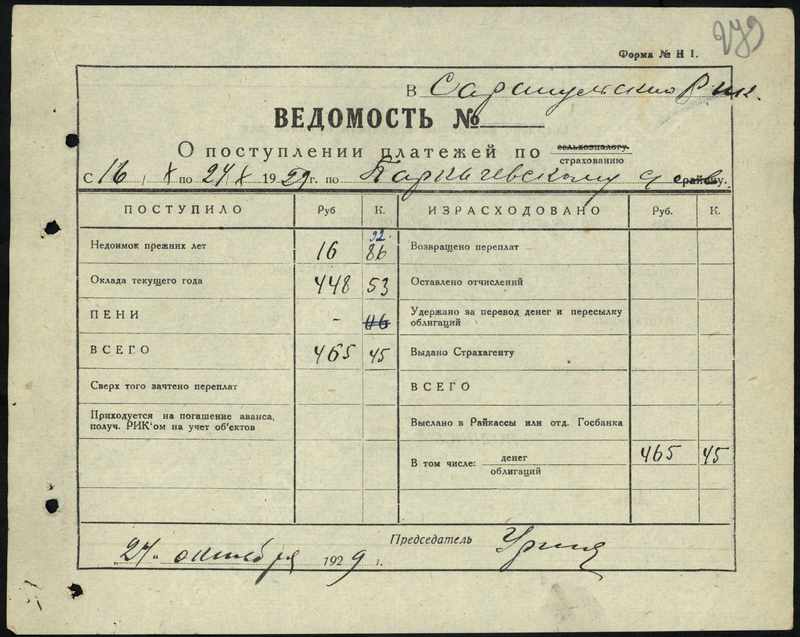 279
Форма № Н 1.
В Сарапульский Рик.
ВЕДОМОСТЬ №
О поступлении платежей по сельхозналогу. страхованию
С 16 / X по 24/X 1929 г. по району.
ПОСТУПИЛО Руб К. ИЗРАСХОДОВАНО Руб. К.
Недоимок прежних лет 16 92 86 Возвращено переплат
Оклада текущего года 448 53 Оставлено отчислений
ПЕНИ - 06 Удержано за перевод денег и пересылку облигаций
ВСЕГО 465 45 Выдано Страхагенту
Сверх того зачтено переплат ВСЕГО
Приходуется на погашение аванса, получ. РИК'ом на учет об'ектов Выслано в Райкассы или отд. Госбанка
В том числе: денег облигаций 465 45
„24" октября 1929 г. Председатель